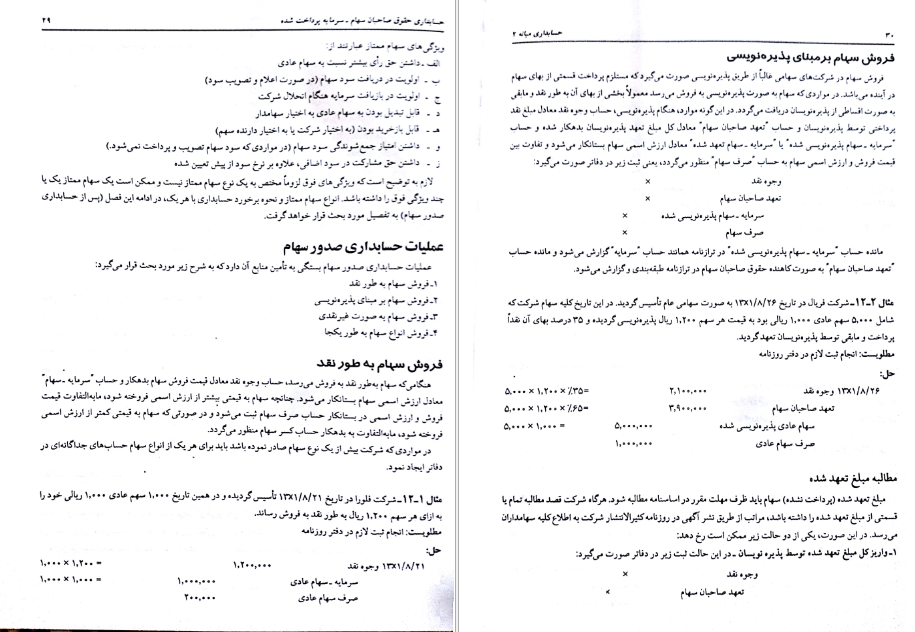 حسابداری حقوق صاحبان سهام ـ سرمایه پرداخت شده ۲۹
ویژگی‌های سهام ممتاز عبارتند از:
الف ـ داشتن حق رأی بیشتر نسبت به سهام عادی
ب ـ اولویت در دریافت سود سهام (در صورت اعلام و تصویب سود)
ج ـ اولویت در بازیافت سرمایه هنگام انحلال شرکت
د ـ قابل تبدیل بودن به سهام عادی به اختیار سهامدار
هـ ـ قابل بازخرید بودن (به اختیار شرکت یا به اختیار دارنده سهم)
و ـ داشتن امتیاز جمع‌شوندگی سود سهام (در مواردی که سود سهام تصویب و پرداخت نمی‌شود.)
ز ـ داشتن حق مشارکت در سود اضافی، علاوه بر نرخ سود از پیش تعیین شده
لازم به توضیح است که ویژگی‌های فوق لزوماً مختص به یک نوع سهام ممتاز نیست و ممکن است یک سهام ممتاز یک یا
چند ویژگی فوق را داشته باشد. انواع سهام ممتاز و نحوه برخورد حسابداری با هر یک، در ادامه این فصل (پس از حسابداری
صدور سهام) به تفصیل مورد بحث قرار خواهد گرفت.
عملیات حسابداری صدور سهام
عملیات حسابداری صدور سهام بستگی به تأمین منابع آن دارد که به شرح زیر مورد بحث قرار می‌گیرد:
۱ـ فروش سهام به طور نقد
۲ـ فروش سهام بر مبنای پذیره‌نویسی
۳ـ فروش سهام به صورت غیرنقدی
۴ـ فروش انواع سهام به طور یکجا
فروش سهام به طور نقد
هنگامی‌که سهام به‌طور نقد به فروش می‌رسد، حساب وجوه نقد معادل قیمت فروش سهام بدهکار و حساب "سرمایه ـ سهام"
معادل ارزش اسمی سهام بستانکار می‌شود. چنانچه سهام به قیمتی بیشتر از ارزش اسمی فروخته شود، مابه‌التفاوت قیمت
فروش و ارزش اسمی در بستانکار حساب صرف سهام ثبت می‌شود و در صورتی که سهام به قیمتی کمتر از ارزش اسمی
فروخته شود، مابه‌التفاوت به بدهکار حساب کسر سهام منظور می‌گردد.
در مواردی که شرکت بیش از یک نوع سهام صادر نموده باشد باید برای هر یک از انواع سهام حساب‌های جداگانه‌ای در
دفاتر ایجاد نمود.
مثال ۱ـ۱۲ـ شرکت فلورا در تاریخ ۱۳x۱/۸/۲۱ تأسیس گردیده و در همین تاریخ ۱,۰۰۰ سهم عادی ۱,۰۰۰ ریالی خود را
به ازای هر سهم ۱,۲۰۰ ریال به طور نقد به فروش رساند.
مطلوبست: انجام ثبت لازم در دفتر روزنامه
حل:
۱۳x۱/۸/۲۱ وجوه نقد ۱,۲۰۰,۰۰۰ = ۱,۲۰۰ × ۱,۰۰۰
سرمایه ـ سهام عادی ۱,۰۰۰,۰۰۰ = ۱,۰۰۰ × ۱,۰۰۰
صرف سهام عادی ۲۰۰,۰۰۰
۳۰ حسابداری میانه ۲
فروش سهام برمبنای پذیره‌نویسی
فروش سهام در شرکت‌های سهامی غالباً از طریق پذیره‌نویسی صورت می‌گیرد که مستلزم پرداخت قسمتی از بهای سهام
در آینده می‌باشد. در مواردی که سهام به صورت پذیره‌نویسی به فروش می‌رسد معمولاً بخشی از بهای آن به طور نقد و مابقی
به صورت اقساطی از پذیره‌نویسان دریافت می‌گردد. در این‌گونه موارد، هنگام پذیره‌نویسی، حساب وجوه نقد معادل مبلغ نقد
پرداختی توسط پذیره‌نویسان و حساب "تعهد صاحبان سهام" معادل کل مبلغ تعهد پذیره‌نویسان بدهکار شده و حساب
"سرمایه ـ سهام پذیره‌نویسی شده" یا "سرمایه ـ سهام تعهد شده" معادل ارزش اسمی سهام بستانکار می‌شود و تفاوت بین
قیمت فروش و ارزش اسمی سهام به حساب "صرف سهام" منظور می‌گردد، یعنی ثبت زیر در دفاتر صورت می‌گیرد:
وجوه نقد ×
تعهد صاحبان سهام ×
سرمایه ـ سهام پذیره‌نویسی شده ×
صرف سهام ×
مانده حساب "سرمایه ـ سهام پذیره‌نویسی شده" در ترازنامه همانند حساب "سرمایه" گزارش می‌شود و مانده حساب
"تعهد صاحبان سهام" به صورت کاهنده حقوق صاحبان سهام در ترازنامه طبقه‌بندی و گزارش می‌شود.
مثال ۲ـ۱۲ـ شرکت فریال در تاریخ ۱۳x۱/۸/۲۶ به صورت سهامی عام تأسیس گردید. در این تاریخ کلیه سهام شرکت که
شامل ۵,۰۰۰ سهم عادی ۱,۰۰۰ ریالی بود به قیمت هر سهم ۱,۲۰۰ ریال پذیره‌نویسی گردیده و ۳۵ درصد بهای آن نقداً
پرداخت و مابقی توسط پذیره‌نویسان تعهد گردید.
مطلوبست: انجام ثبت لازم در دفتر روزنامه
حل:
۱۳x۱/۸/۲۶ وجوه نقد ۲,۱۰۰,۰۰۰ =۵,۰۰۰ × ۱,۲۰۰ × ٪۳۵
تعهد صاحبان سهام ۳,۹۰۰,۰۰۰ =۵,۰۰۰ × ۱,۲۰۰ × ٪۶۵
سهام عادی پذیره‌نویسی شده ۵,۰۰۰,۰۰۰ = ۵,۰۰۰ × ۱,۰۰۰
صرف سهام عادی ۱,۰۰۰,۰۰۰
مطالبه مبلغ تعهد شده
مبلغ تعهد شده (پرداخت نشده) سهام باید ظرف مهلت مقرر در اساسنامه مطالبه شود. هرگاه شرکت قصد مطالبه تمام یا
قسمتی از مبلغ تعهد شده را داشته باشد، مراتب از طریق نشر آگهی در روزنامه کثیرالانتشار شرکت به اطلاع کلیه سهامداران
می‌رسد. در این صورت، یکی از دو حالت زیر ممکن است رخ دهد:
۱ـ واریز کل مبلغ تعهد شده توسط پذیره نویسان ـ در این حالت ثبت زیر در دفاتر صورت می‌گیرد:
وجوه نقد ×
تعهد صاحبان سهام ×